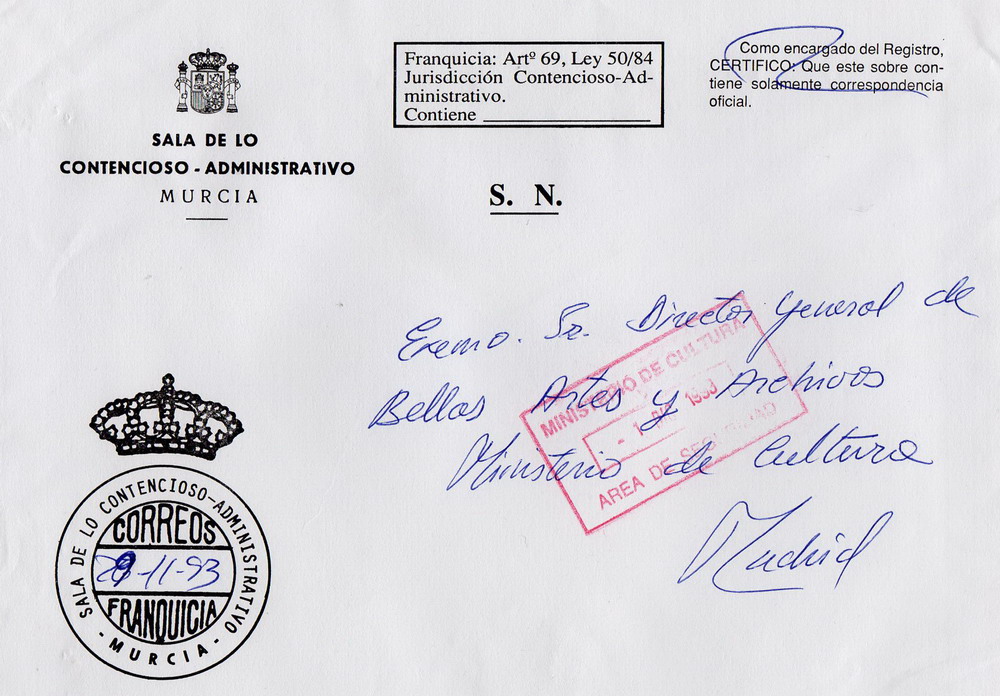 SALA DE LO
CONTENCIOSO - ADMINISTRATIVO
MURCIA
Franquicia: Artº 69, Ley 50/84
Jurisdicción Contencioso-Ad-
ministrativo.
Contiene
Como encargado del Registro,
CERTIFICO: Que este sobre con-
tiene solamente correspondencia
oficial.
S. N.
Exmo. Sr. Director General de
Bellas Artes y Archivos
Ministerio de Cultura
Madrid
MINISTERIO DE CULTURA
- 1 1993
AREA DE SEGURIDAD
SALA DE LO CONTENCIOSO-ADMINISTRATIVO
CORREOS
29-11-93
FRANQUICIA
- MURCIA -